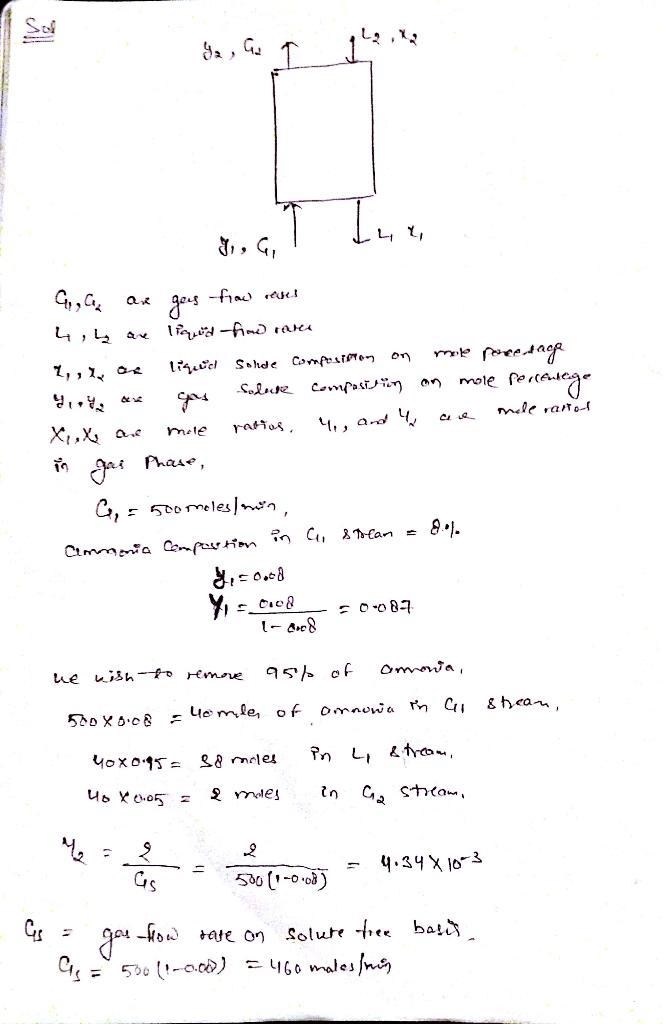 Sol
y₂, G₂ L₂, x₂
y₁, G₁ L₁ x₁
G₁, G₂ are gas flow rates
L₁, L₂ are liquid flow rates
x₁, x₂ are liquid solute composition on mole percentage
y₁, y₂ are gas solute composition on mole percentage
X₁, X₂ are mole ratios, Y₁, and Y₂ are mole ratios
in gas phase,
G₁ = 500 moles/min,
ammonia composition in G₁ stream = 8%
y₁ = 0.08
Y₁ = 0.08 / (1 - 0.08) = 0.087
we wish to remove 95% of ammonia,
500 x 0.08 = 40 moles of ammonia in G₁ stream,
40 x 0.95 = 38 moles in L₁ stream,
40 x 0.05 = 2 moles in G₂ stream,
Y₂ = 2 / Gs = 2 / 500(1-0.08) = 4.34 x 10⁻³
Gs = gas flow rate on solute free basis.
Gs = 500 (1-0.08) = 460 moles/min